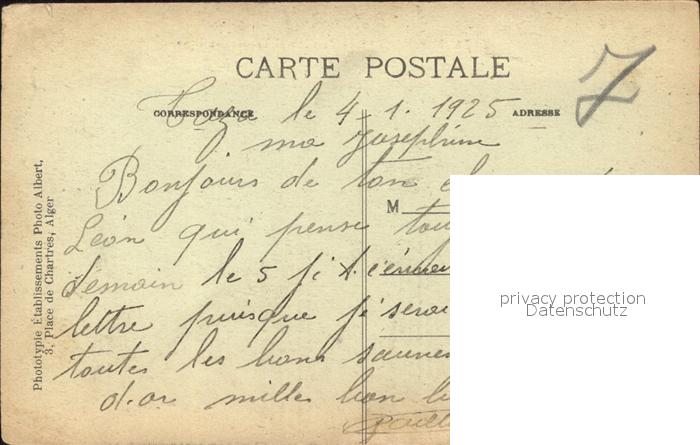 CARTE POSTALE
CORRESPONDANCE
ADRESSE
Taza le 4.1.1925
7
ma Joséphine
Bonjours de ton
Léon qui pense
M
demain le 5 je t'
lettre puisque je serai
toutes les bons
d'or mille bon
Phototypie Établissements Photo Albert,
3, Place de Chartres, Alger
privacy protection
Datenschutz